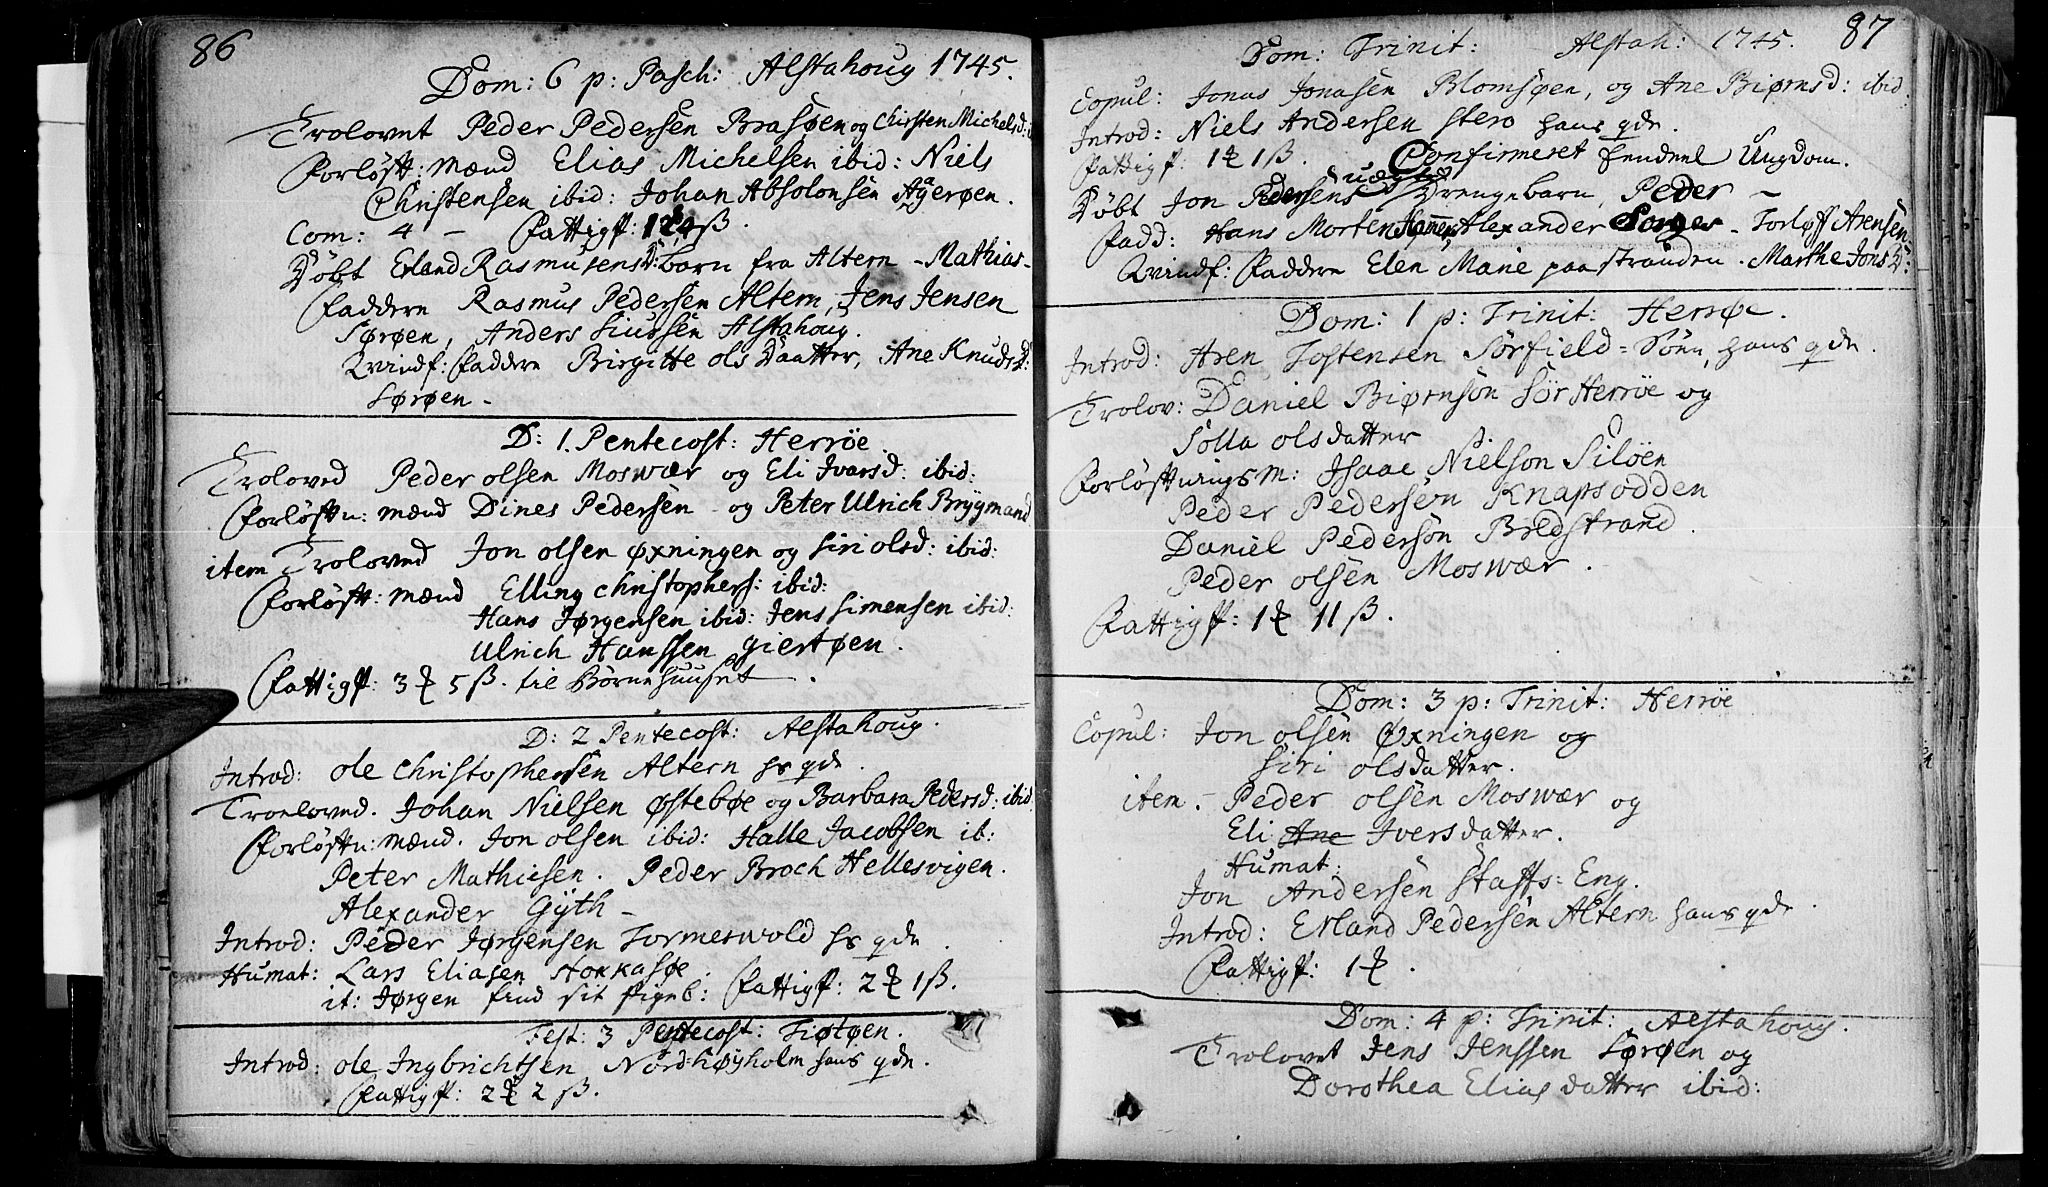 86
Dom: 6 p: Pasch: Alstahoug 1745.
Trolovet Peder Pedersen Brasøen og Chirsten Michelsd:
Forløft: mænd Elias Michelsen ibid: Niels
Christensen ibid: Johan Absolonsen Agerøen.
Com: 4 – Fattigp: ß.
Døbt Erland Rasmusens D:barn fra Altern – Mathias –
Faddere Rasmus Pedersen Altern, Jens Jensen
Sørøen, Anders Siursen Alstahoug.
Qvindf: Faddere Birgitte ols Daatter, Ane Knuds D:
Sørøen –
D: 1. Pentecost: Herrøe
Troloved Peder olsen Moswær og Eli Ivarsd: ibid:
Forløftn: mænd Dines Pedersen – og Peter Ulrich Brygmand
item Troloved Jon olsen Øxningen og Siri olsd: ibid:
Forløft: mænd Elling Christophers: ibid:
Hans Jørgensen ibid: Jens Simensen ibid:
Ulrich Hanssen Giertøen.
Fattigp: 3 ꝶ 5 ß. til Börnehuuset.
D: 2 Pentecost: Alstahoug.
Introd: ole Christophersen Altern hs qde.
Troeloved. Johan Nielsen Østebøe og Barbara Pedersd: ibid
Forløftn: mænd. Jon olsen ibid: Halle Jacobsen ib:
Peter Mathiesen. Peder Broch Hellesvigen.
Alexander Gÿth –
Introd: Peder Jørgensen Tormeswold hs qde.
Humat: Lars Eliasen Stokkasøe
it: Jørgen find sit pigeb: Fattigp: 2 ꝶ 1 ß.
Fest: 3 Pentecost: Tiøtøen.
Introd: ole Ingbrichtsen Nord-Høyholm hans qde.
Fattigp: 2 ꝶ 2 ß.
87
Dom: Trinit: Alstah: 1745.
Copul: Jonas Jonasen Blomsøen, og Ane Biørnsd: ibid.
Introd: Niels Andersen Stero hans qde.
Fattigp: 1 ꝶ 1 ß. Confirmeret hendeel Ungdom.
Døbt Jon Pedersens uægte Drengebarn, Peder –
Fadd: Hans Morten Alexander – Torløff Arensen
Qvindf: Faddere Elen Marie paa stranden. Marthe Jons D:
Dom: 1 p: Trinit: Herrøe.
Introd: Aren Tostensen Sörfield = Sönn, hans qde.
Trolov: Daniel Biørnsön Sör Herröe og
Solla olsdatter
Forløftnings M: Isaac Nielson Silöen
Peder Pedersen Knapsodden
Daniel Pederson Bredstrand.
Peder olsen Moswær.
Fattigp: 1 ꝶ 11 ß.
Dom: 3 p: Trinit: Herröe
Copul: Jon olsen Øxningen og
Siri olsdatter.
item. – Peder olsen Moswær og
Eli Ane Iversdatter.
Humat:
Jon Andersen Staffs: Eng.
Introd: Erland Pedersen Altern hans qde.
Fattigp: 1 ꝶ.
Dom: 4 p: Trinit: Alstahoug.
Trolovet Jens Jenssen Sørøen og
Dorothea Elias datter ibid: